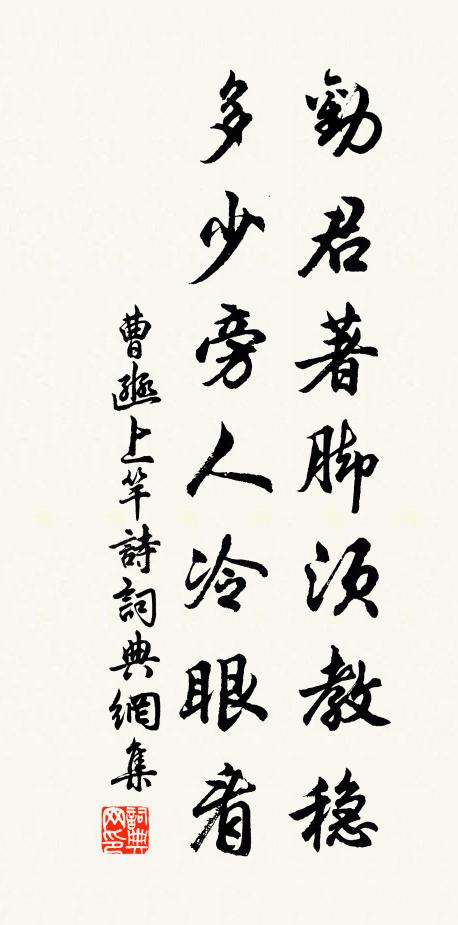 勸君著脚須教穩
多少旁人冷眼看
曹邍上竿詩詞典網集
詞典网印